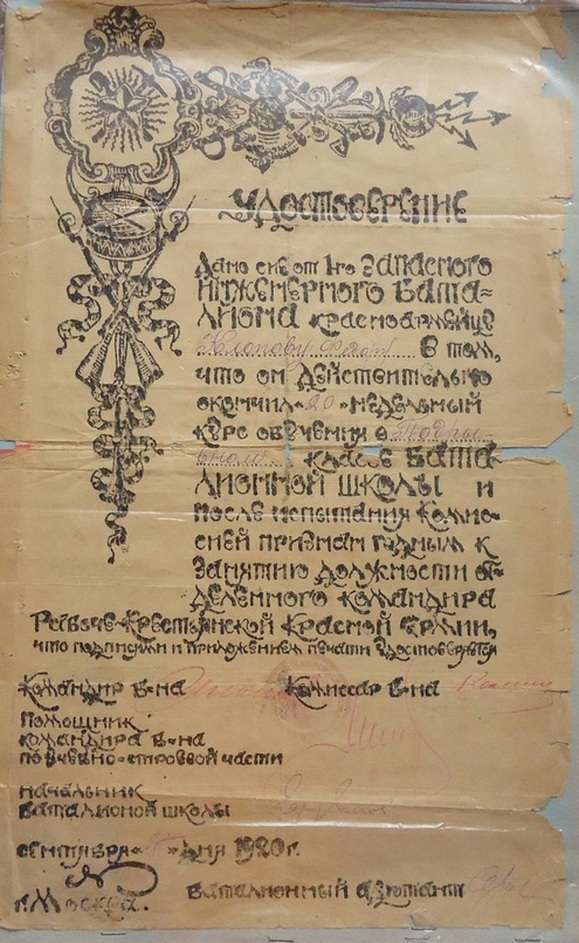 Удостоверение
Дано сие от 1-го Запасного
Инженерного Бата-
лиона красноармейцу
в том,
что он действительно
окончил „20" недельный
курс обучения в
классе Бата-
лионной школы и
после испытания Комис-
сией признан годным к
занятию должности от-
деленного командира
Рабоче-Крестьянской Красной Армии,
что подписями и приложением печати удостоверяется
Командир б-на Комиссар б-на
Помощник
командира б-на
по учебно-строевой части
начальник
баталионой школы
сентября „ " дня 1920 г.
г. Москва. баталионный адъютант